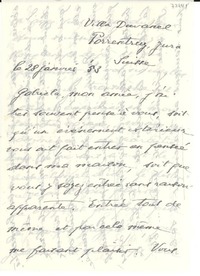 Villa Duvanel
Porrentruy, Jura
Suisse
le 28 janvier
Gabriela, mon amie, j'ai
souvent pensé à vous, soit
qu'un événement extérieur
vous ait fait entrer en pensée
dans ma maison, soit que
vous y soyez entrée sans raison
apparente. Entrée tout de
même et par cela même
me faisant plaisir. Vous